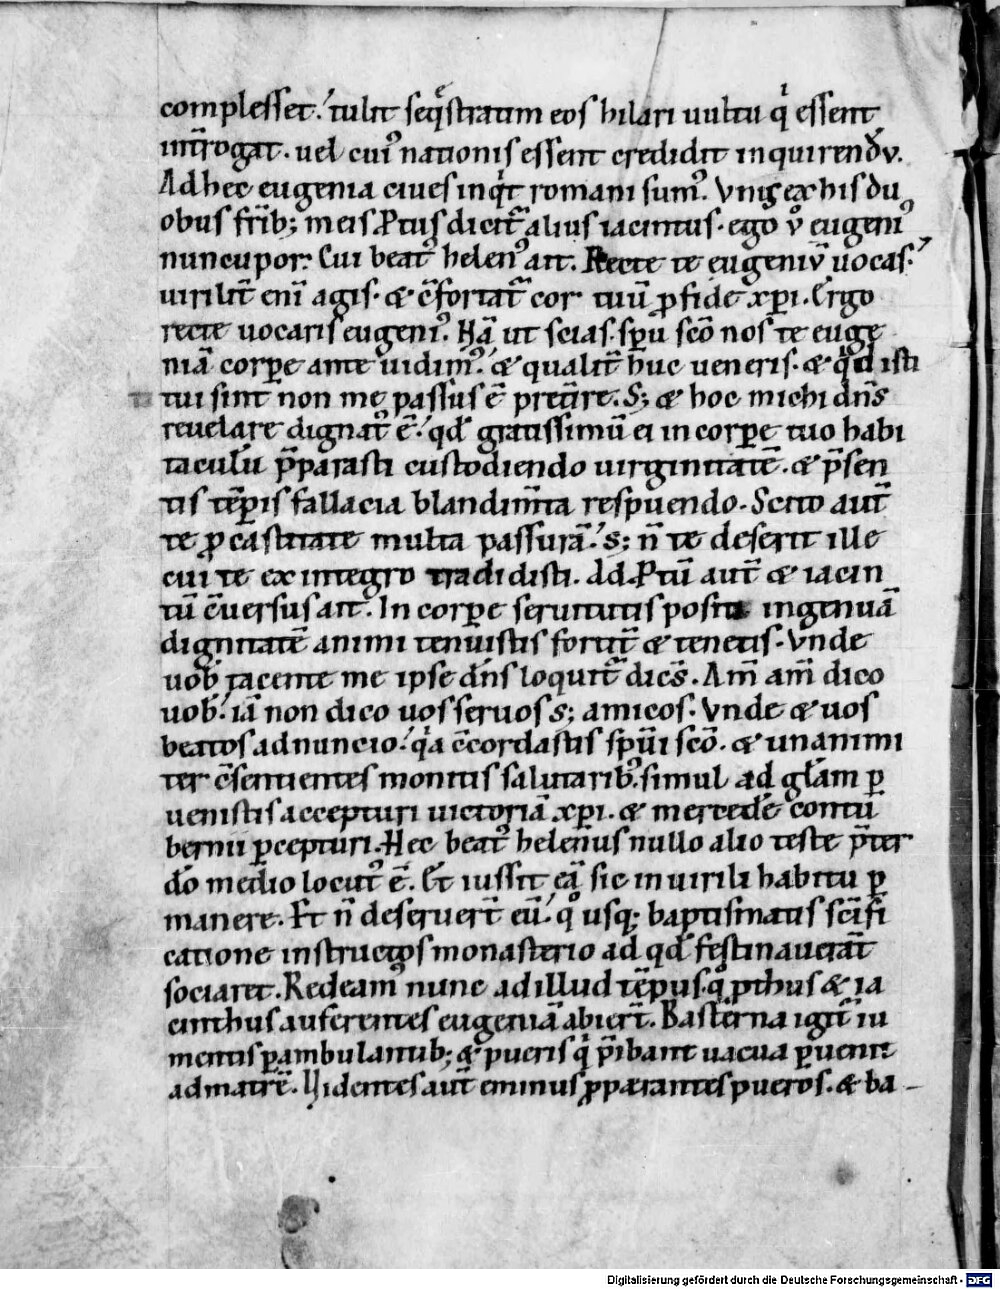 complesset. tulit seq̄stratim eos hilari uultu qͥ essent
int̄rogat. uel cui᾽ nationis essent credidit inquirendū.
Ad hec eugenia ciues inqͥt romani sum᾽. Vnꝰ ex his du
obus frīb; meis Ptus dicit᷑ alius iacintus. ego v͛ eugeni᾽
nuncupor. Cui beat᾽ helen᾽ ait. Recte te eugeniū uocas.
uirilit̄ enī agis. & c̄fortat᷑ cor tuū ꝓ fide xp̄i. Ergo
recte uocaris eugeni᾽. Hā ut scias. sp̄u scō nos te euge
niā corꝑe ante uidim᾽. & qualit̄ huc ueneris. & qd̄ isti
tui sint non me passus ē pret̄ire. S; & hoc michi dn̄s
reuelare dignat᾽ ē. qd̄ gratissimū ei in corꝑe tuo habi
taculū p̄parasti custodiendo uirginitatē. & p̄sen
tis tēꝑis fallacia blandim̄ta respuendo. Scito aut̄
te ꝓ castitate multa passurā. s; n̄ te deserit ille
cui te ex integro tradidisti. Ad Ptū aut̄ & iacin
tū c̄uersus ait. In corꝑe seruitutis positi ingenuā
dignitatē animi tenuistis fortit̄ & tenetis. Vnde
uob̄ tacente me ipse dn̄s loquit᷑ dicēs. Am̄ am̄ dico
uob̄. iā non dico uos seruos s; amicos. Vnde & uos
beatos adnuncio. qͣa c̄cordastis sp̄ui scō. & unanimi
ter c̄sentientes monitis salutarib᾽. simul ad gl̄am ꝑ
uenistis accepturi uictoriā xp̄i. & mercedē contu
bernii ꝑcepturi. Hec beat᾽ helenus nullo alio teste p̄ter
dō medio locut᾽ ē. Et iussit eā sic in uirili habitu ꝑ
manere. Et n̄ deseruert̄ eū. qͦ usq; baptismatis scīfi
catione instructos monasterio ad qd̄ festinauerāt
sociaret. Redeam᾽ nunc ad illud tēpus. qͦ ꝓthus & ia
cinthus auferentes eugeniā abiert̄. Basterna igit᷑ iu
mentis ꝑambulantib; & pueris qͥ p̄ibant uacua ꝑuenit
ad matrē. Uidentes aut̄ eminus ꝓꝑarantes pueros. & ba-
Digitalisierung gefördert durch die Deutsche Forschungsgemeinschaft - DFG